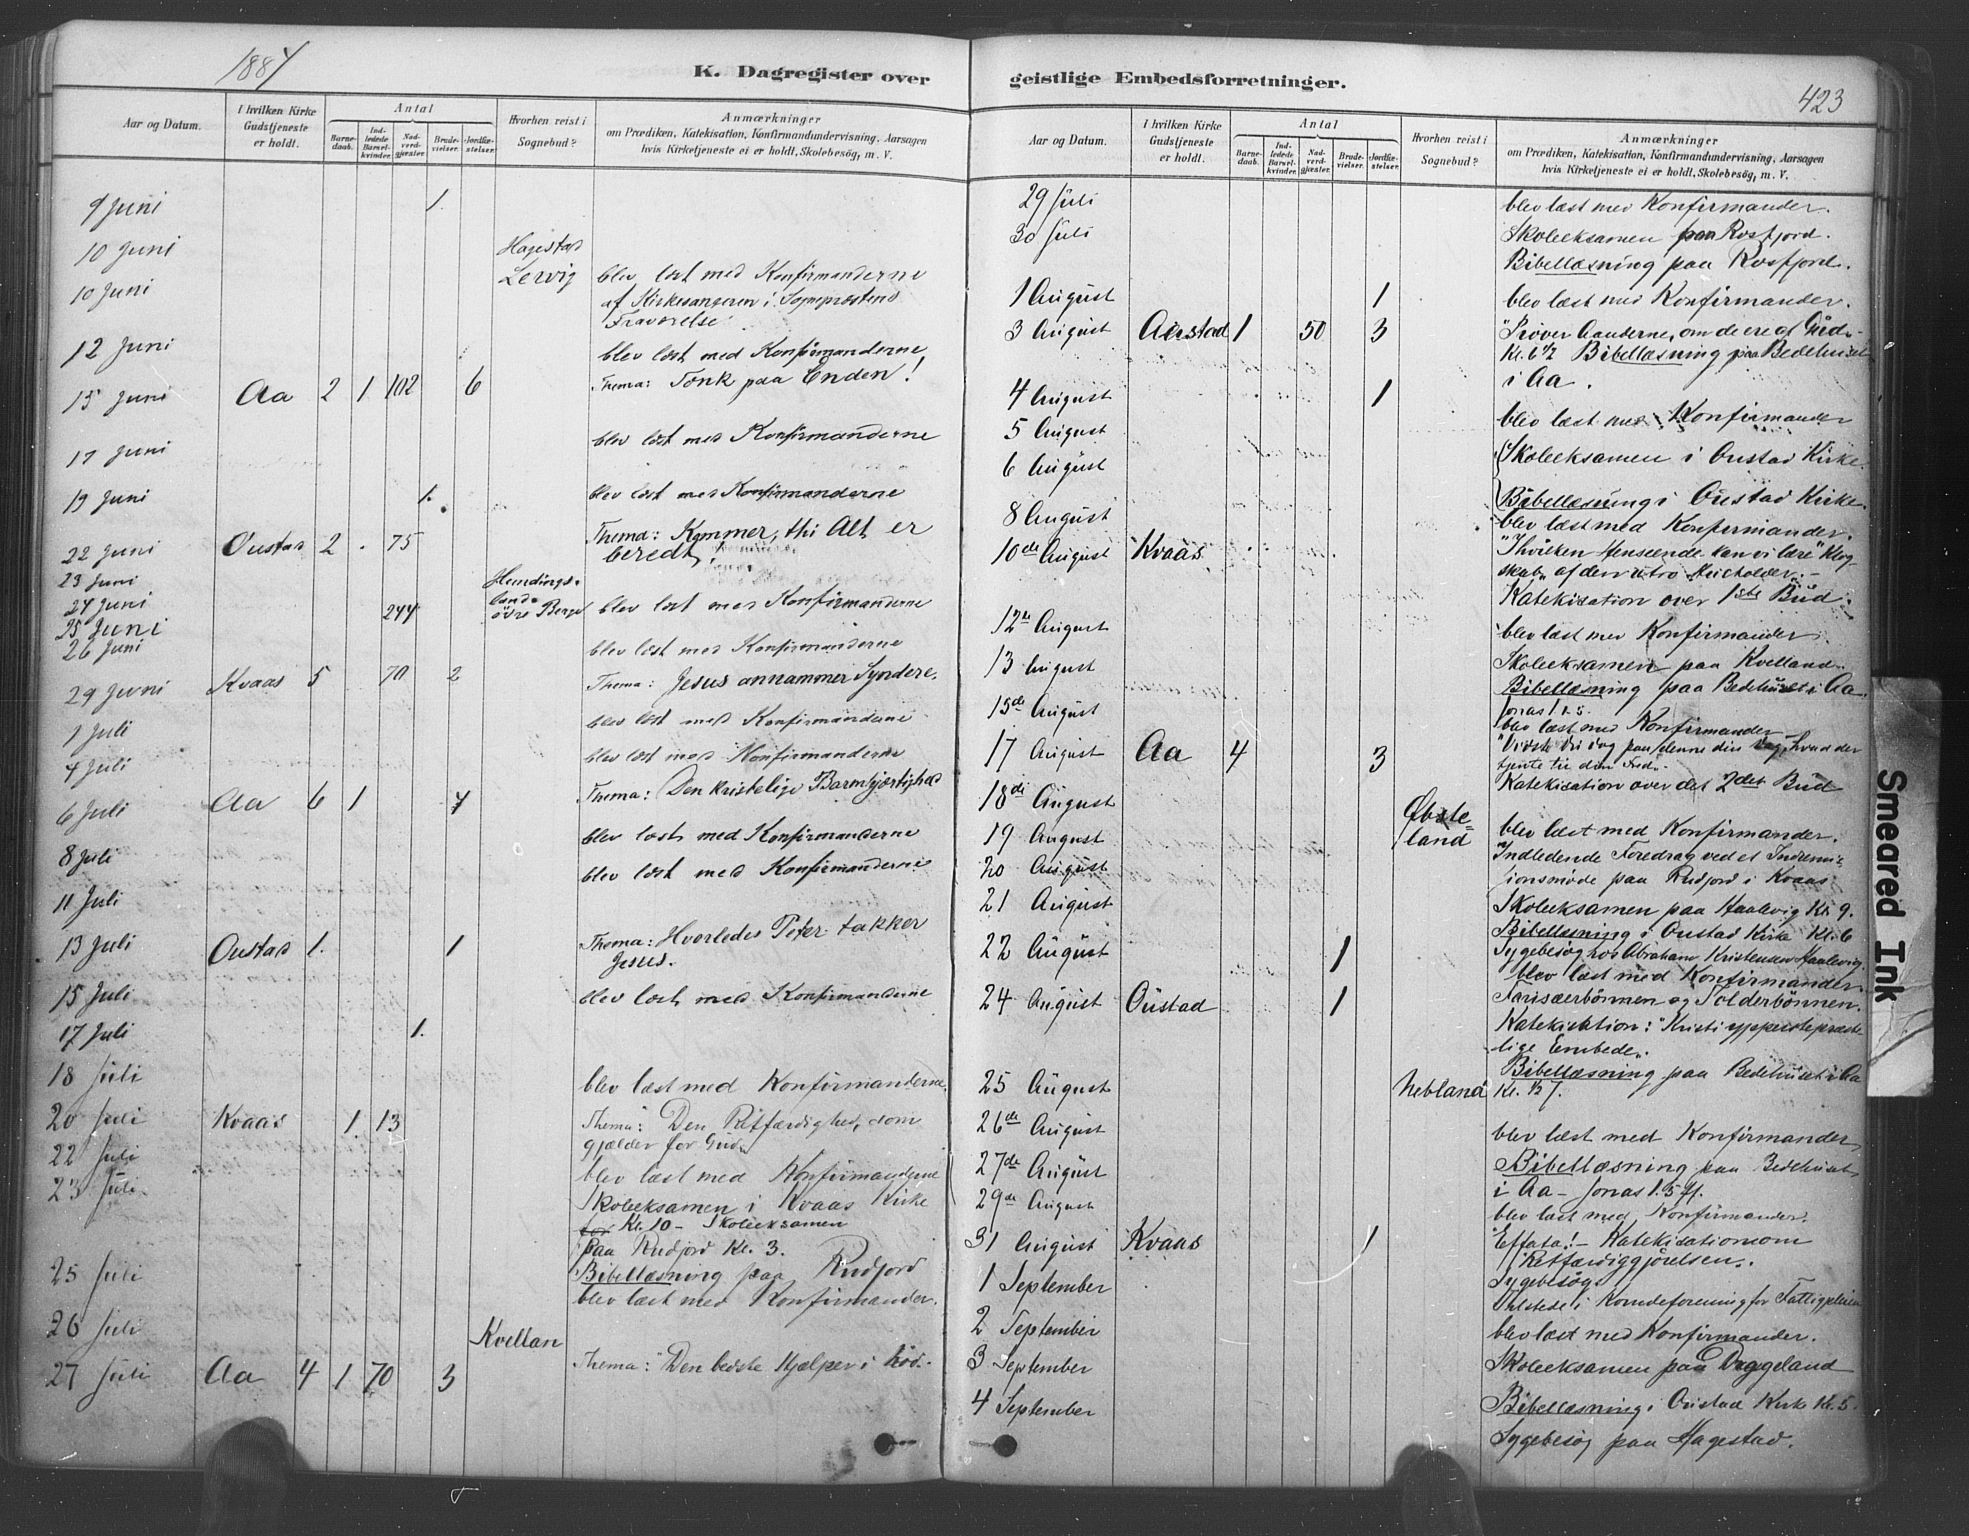 1884
K. Dagregister over
Aar og Datum.
I hvilken Kirke Gudstjeneste er holdt.
Antal
Barnedaab.
Indledede Barselkvinder.
Nadverdgjæster.
Brudevielser.
Jordfæstelser.
Hvorhen reist i Sognebud?
Anmærkninger
om Prædiken, Katekisation, Konfirmandundervisning, Aarsagen
hvis Kirketjeneste ei er holdt, Skolebesøg, m. V.
9 Juni 1.
10 Juni Hagestad
10 Juni Lervig blev læst med Konfirmanderne
af Kirkesangeren i Sogneprestens
Fraværelse
12 Juni blev læst med Konfirmanderne
15 Juni Aa 2 1 102 6 Thema: Tænk paa Enden!
17 Juni blev læst med Konfirmanderne
19 Juni 1. blev læst med Konfirmanderne
22 Juni Oustad 2 . 75 Thema: Kommer, thi Alt er
beredt!
23 Juni
24 Juni 244 øvre Berge blev læst med Konfirmanderne
25 Juni
26 Juni blev læst med Konfirmanderne
29 Juni Kvaas 5 70 2 Thema: Jesus annammer Syndere.
1 Juli blev læst med Konfirmandene
4 Juli blev læst med Konfirmanderne
6 Juli Aa 6 1 Thema: Den kristelige Barmhjærtighed
8 Juli blev læst med Konfirmanderne
11 Juli blev læst med Konfirmanderne
13 Juli Oustad 1. 1 Thema: Hvorledes Peter takker
Jesus.
15 Juli blev læst med Konfirmanderne
17 Juli 1.
18 Juli blev læst med Konfirmanderne.
20 Juli Kvaas 1. 13 Thema: Den Retfærdighed, som
gjælder for Gud.
22 Juli blev læst med Konfirmanderne
23 Juli Skoleeksamen i Kvaas Kirke
Kl. 10 - Skoleeksamen
paa Rudjord Kl. 3.
25 Juli Bibellæsning paa Rudjord
blev læst med Konfirmander.
26 Juli Kvellan
27 Juli Aa 4 1 70 3 Thema: "Den bedste Hjælper i Nød."
geistlige Embedsforretninger.
423
Aar og Datum.
I hvilken Kirke Gudstjeneste er holdt.
Antal
Barnedaab.
Indledede Barselkvinder.
Nadverdgjæster.
Brudevielser.
Jordfæstelser.
Hvorhen reist i Sognebud?
Anmærkninger
om Prædiken, Katekisation, Konfirmandundervisning, Aarsagen
hvis Kirketjeneste ei er holdt, Skolebesøg, m. V.
29 Juli blev læst med Konfirmander.
30 Juli Skoleeksamen paa Rosfjord.
Bibellæsning paa Rosfjord.
1 August 1 blev læst med Konfirmander.
3 August Oustad 1 50 3 "Prøver Aanderne, om de ere af Gud."
Kl. 6 1/2 Bibellæsning paa Bedehuset
i Aa.
4 August 1
5 August blev læst med Konfirmander
6 August Skoleeksamen i Oustad Kirke.
Bibellæsning i Oustad Kirke.
8 August blev læst med Konfirmander.
10de August Kvaas "I hvilken Henseende kan vi lære" Klog-
skab" af den utro Husholder."
Katekisation over 1ste Bud.
12te August blev læst med Konfirmander.
13 August Skoleeksamen paa Kvelland.
Bibellæsning paa Bedehuset i Aa.
Jonas 1
15de August blev læst med Konfirmander
17 August Aa 4 3 "Vidste du i dag paa denne din Dag, hvad der
tjente til din Fred."
Katekisation over det 2det Bud
18de August
19 August land blev læst med Konfirmander.
20 August Indledende Foredrag ved et Indremis-
sionsmøde paa Rudjord i Kvaas
21 August Skoleeksamen paa Haalevig Kl. 9.
Bibellæsning i Oustad Kirke Kl. 6
Sygebesøg hos Abraham Kristensen Haalevig.
22 August 1 blev læst med Konfirmander.
24 August Oustad 1 Farisæerbønnen og Tolderbønnen.
Katekisation: "Kristi ypperstepræste-
lige Embede".
25 August Nebland Bibellæsning paa Bedehuset i Aa
Kl. 1/2 7.
26de August blev læst med Konfirmander
27de August Bibellæsning paa Bedehuset,
i Aa - Jonas 1. 5 ff.
29de August blev læst med Konfirmander.
31 August Kvaas 1 "Effata!" - Katekisation om
Retfærdiggjørelsen.
1 September Sygebesøg
for Fattigpleien
2 September blev læst med Konfirmander.
3 September Skoleeksamen paa Dyggeland
4 September Bibellæsning i Oustad Kirke Kl. 5.
Sygebesøg paa Hagestad.
Smeared Ink